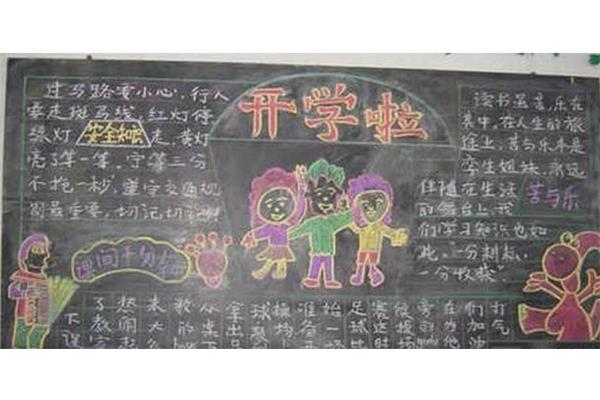 开学啦
过马路要小心,行人
要走斑马线,红灯停
绿灯走,黄灯
安全知识
亮了等一等,宁等三分
不抢一秒,遵守交通规
则最重要,切记切记
读书虽苦,乐在
其中。在人生的旅
途上,苦与乐本是
孪生姐妹,永远
伴随在生活
苦与乐
的舞台上,我
们学习知识也如
此,“一分耕耘,
一分收获”
课间十分钟
下课
了教室
来大
从桌下
拿出足
操场上
准备开
始一场
足球比
赛这时
候操场
在为他
们加油
打气